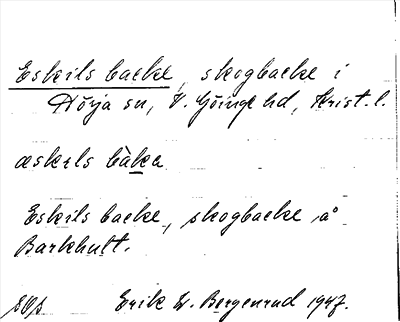 Eskils backe, skogbacke i
Nörja sn, V. Göinge hd, Krist. l.
æskɩls bàka
Eskils backe, skogbacke å
Barkhult.
Erik W. Borgenrud 1947.